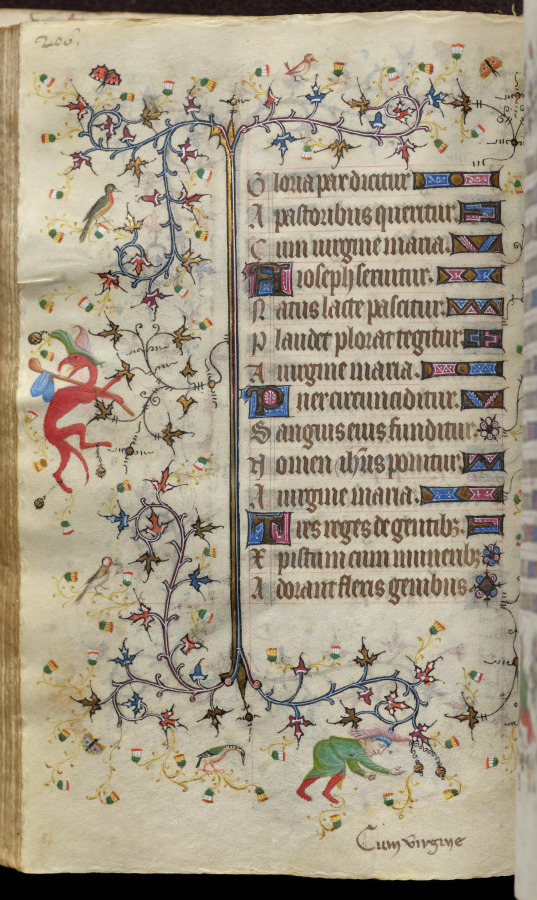 206.
Gloria par dicitur
A pastoribus queritur.
Cum virgine maria.
A ioseph seruitur.
Natus lacte pascitur.
Plaudet plorat tegitur.
A virgine maria.
Puer circumciditur.
Sanguis eius funditur.
Nomen ih̅us ponitur.
A virgine maria.
Tres reges de gentibꝫ.
Xpistum cum muneribꝫ
Adorant flexis genibus
Cum virgine